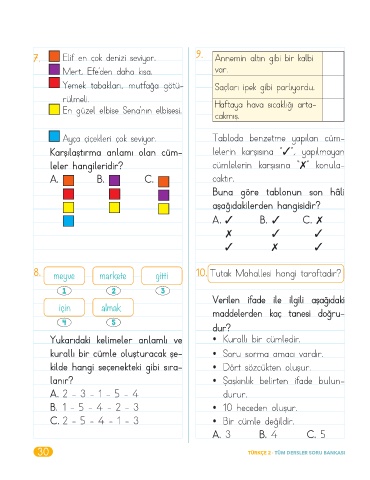 7.
Elif en çok denizi seviyor.
Mert, Efe'den daha kısa.
Yemek tabakları, mutfağa götü-
rülmeli.
En güzel elbise Sena'nın elbisesi.
Ayça çiçekleri çok seviyor.
Karşılaştırma anlamı olan cüm-
leler hangileridir?
A. B. C.
8.
meyve markete gitti
1 2 3
için almak
4 5
Yukarıdaki kelimeler anlamlı ve
kurallı bir cümle oluşturacak şe-
kilde hangi seçenekteki gibi sıra-
lanır?
A. 2 - 3 - 1 - 5 - 4
B. 1 - 5 - 4 - 2 - 3
C. 2 - 5 - 4 - 1 - 3
9.
Annemin altın gibi bir kalbi
var.
Saçları ipek gibi parlıyordu.
Haftaya hava sıcaklığı arta-
cakmış.
Tabloda benzetme yapılan cüm-
lelerin karşısına "✓", yapılmayan
cümlelerin karşısına "✗" konula-
caktır.
Buna göre tablonun son hâli
aşağıdakilerden hangisidir?
A. ✓ B. ✓ C. ✗
✗ ✓ ✓
✓ ✗ ✓
10. Tutak Mahallesi hangi taraftadır?
Verilen ifade ile ilgili aşağıdaki
maddelerden kaç tanesi doğru-
dur?
• Kurallı bir cümledir.
• Soru sorma amacı vardır.
• Dört sözcükten oluşur.
• Şaşkınlık belirten ifade bulun-
durur.
• 10 heceden oluşur.
• Bir cümle değildir.
A. 3 B. 4 C. 5
30
TÜRKÇE 2 - TÜM DERSLER SORU BANKASI